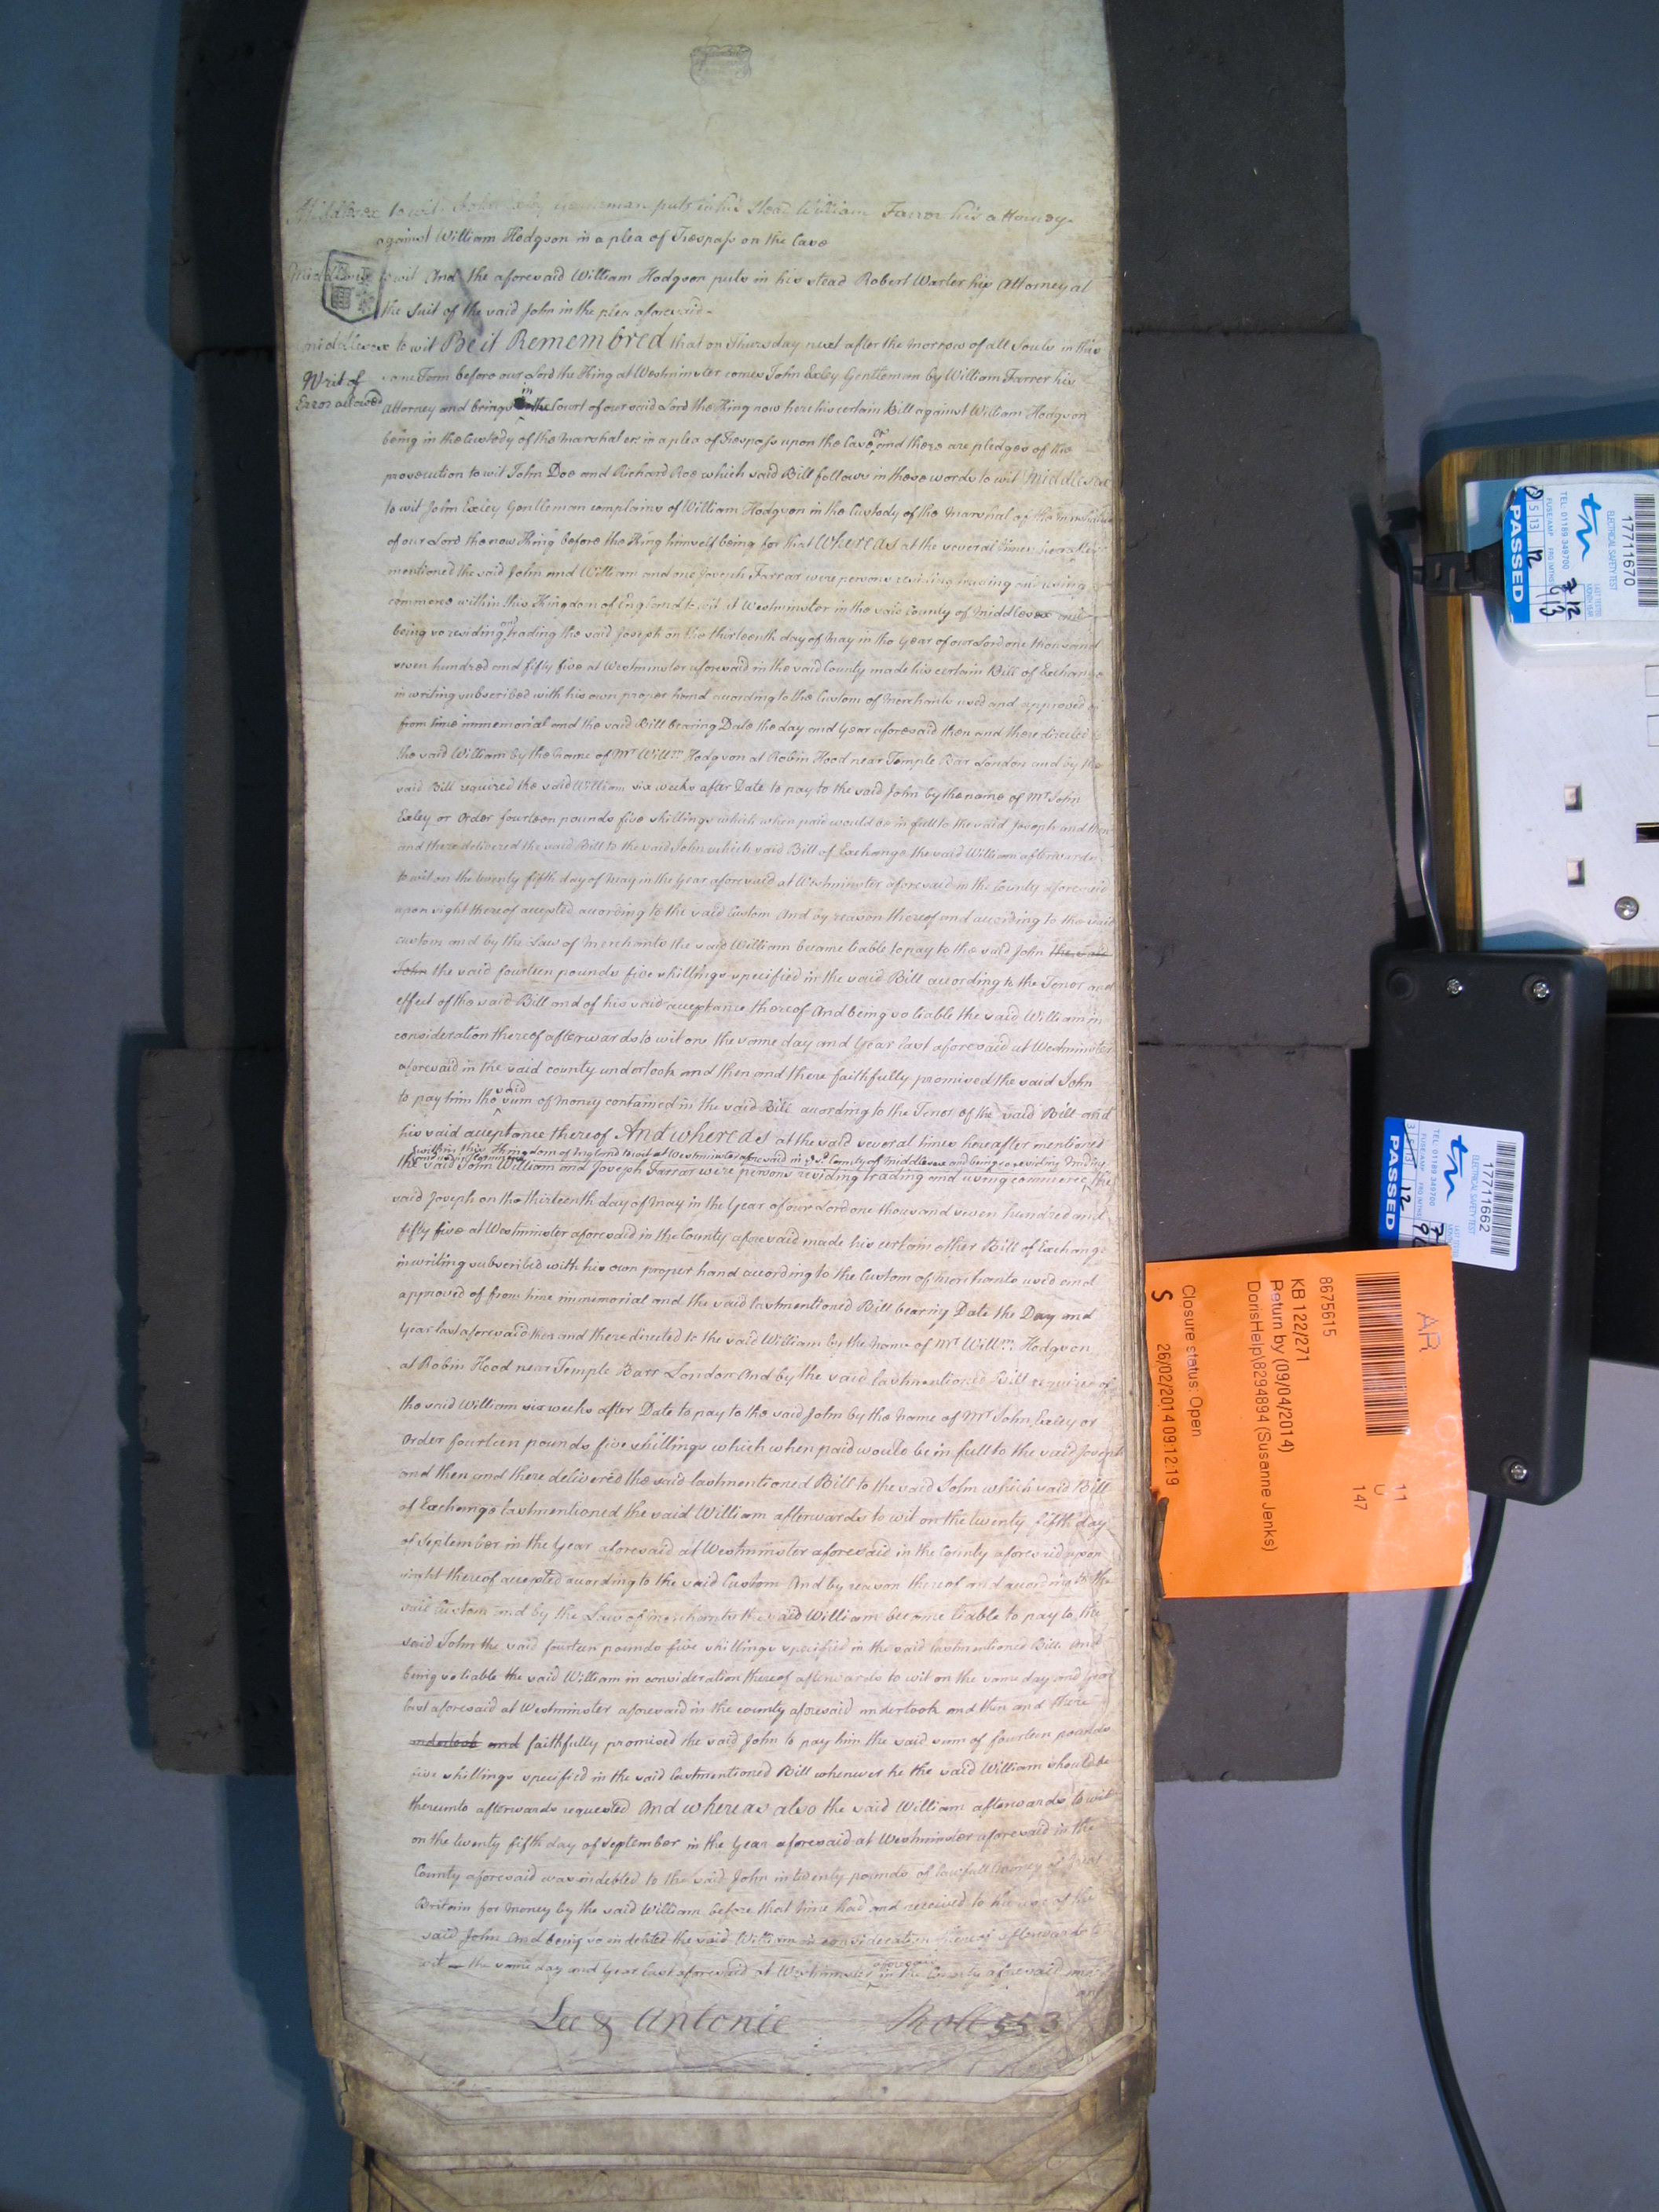 Middlesex to wit John Exley Gentleman puts in his Stead William Farrer his attorney
against William Hodgson in a plea of Trespass on the Case
Middlesex to wit And the aforesaid William Hodgson puts in his stead Robert Warter his Attorney at
the Suit of the said John in the plea aforesaid
Middlesex to wit Be it Remembred that on Thursday next after the morrow of all Souls in this
Writ of
Error allowed
same Term before our Lord the King at Westminster comes John Exley Gentleman by William Farrer his
Attorney and brings in the Court of our said Lord the King now here his certain Bill against William Hodgson
being in the Custody of the Marshal &c in a plea of Trespass upon the Case and there are pledges of the
prosecution to wit John Doe and Richard Roe which said Bill follows in these words to wit Middlesex
to wit John Exley Gentleman complains of William Hodgson in the Custody of the Marshal of the Marshalsea
of our Lord the now King before the King himself being for that Whereas at the several times hereafter
mentioned the said John and William and one Joseph Farrar were persons residing trading and using
commerce within this Kingdom of England to wit at Westminster in the said County of Middlesex and
being so residing and trading the said Joseph on the thirteenth day of May in the Year of our Lord one thousand
seven hundred and fifty five at Westminster aforesaid in the said County made his certain Bill of Exchange
in writing subscribed with his own proper hand according to the Custom of Merchants used and approved of
from time immemorial and the said Bill bearing Date the day and Year aforesaid then and there directed to
the said William by the name of Mr Willm Hodgson at Robin Hood near Temple Bar London and by the
said Bill required the said William six weeks after Date to pay to the said John by the name of Mr John
Exley or Order fourteen pounds five shillings which when paid would be in full to the said Joseph and then
and there delivered the said Bill to the said John which said Bill of Exchange the said William afterwards
to wit on the twenty fifth day of May in the Year aforesaid at Westminster aforesaid in the County aforesaid
upon sight thereof accepted according to the said Custom And by reason thereof and according to the said
custom and by the Law of Merchants the said William became liable to pay to the said John the said
John the said fourteen pounds five shillings specified in the said Bill according to the Tenor and
effect of the said Bill and of his said acceptance thereof And being so liable the said William in
consideration thereof afterwards to wit on the same day and Year last aforesaid at Westminster
aforesaid in the said county undertook and then and there faithfully promised the said John
to pay him the said sum of money contained in the said Bill according to the Tenor of the said Bill and
his said acceptance thereof And whereas at the said several times hereafter mentioned
within this Kingdom of England to wit at Westminster aforesaid in the sd County of Middlesex and being so residing trading
the said John William and Joseph Farrar were persons residing trading and using commerce the
said Joseph on the thirteenth day of May in the Year of our Lord one thousand seven hundred and
fifty five at Westminster aforesaid in the County aforesaid made his certain other Bill of Exchange
in writing subscribed with his own proper hand according to the Custom of Merchants used and
approved of from time immemorial and the said lastmentioned Bill bearing Date the Day and
Year last aforesaid then and there directed to the said William by the name of Mr Willm Hodgson
at Robin Hood near Temple Barr London And by the said lastmentioned Bill required of
the said William six weeks after Date to pay to the said John by the name of Mr John Exley or
Order fourteen pounds five shillings which when paid would be in full to the said Joseph
and then and there delivered the said lastmentioned Bill to the said John which said Bill
of Exchange lastmentioned the said William afterwards to wit on the twenty fifth day
of September in the Year aforesaid at Westminster aforesaid in the County aforesaid upon
sight thereof accepted according to the said Custom And by reason thereof and according to the
said Custom and by the Law of Merchants the said William became liable to pay to the
said John the said fourteen pounds five shillings specified in the said lastmentioned Bill And
being so liable the said William in consideration thereof afterwards to wit on the same day and Year
last aforesaid at Westminster aforesaid in the county aforesaid undertook and then and there
undertook and faithfully promised the said John to pay him the said sum of fourteen pounds
five shillings specified in the said lastmentioned Bill whenever he the said William should be
thereunto afterwards requested And whereas also the said William afterwards to wit
on the twenty fifth day of September in the Year aforesaid at Westminster aforesaid in the
County aforesaid was indebted to the said John in twenty pounds of lawfull money of Great
Britain for money by the said William before that time had and received to the use of the
said John And being so indebted the said William in consideration thereof afterwards to
wit the same day and Year last aforesaid at Westminster aforesaid in the County aforesaid
Lee & Antonie Roll 553
AR
11
U
147
8675615
KB 122/271
Return by (09/04/2014)
DorisHelp\8294894 (Susanne Jenks)
Closure status: Open
S 26/02/2014 09:12:19
17711670
ELECTRICAL SAFETY TEST
TEL: 01189 349700
PASSED
17711662
ELECTRICAL SAFETY TEST
TEL: 01189 349700
PASSED